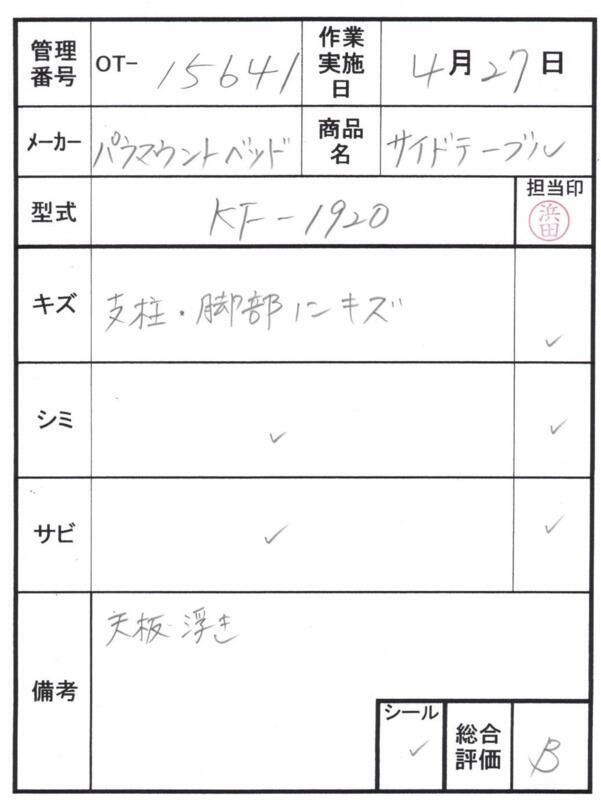 管理番号 OT- 15641 作業実施日 4月27日
メーカー パラマウントベッド 商品名 サイドテーブル
型式 KF-1920 担当印 浜田
キズ 支柱・脚部にキズ ✓
シミ ✓ ✓
サビ ✓ ✓
備考 天板浮き
シール ✓ 総合評価 B